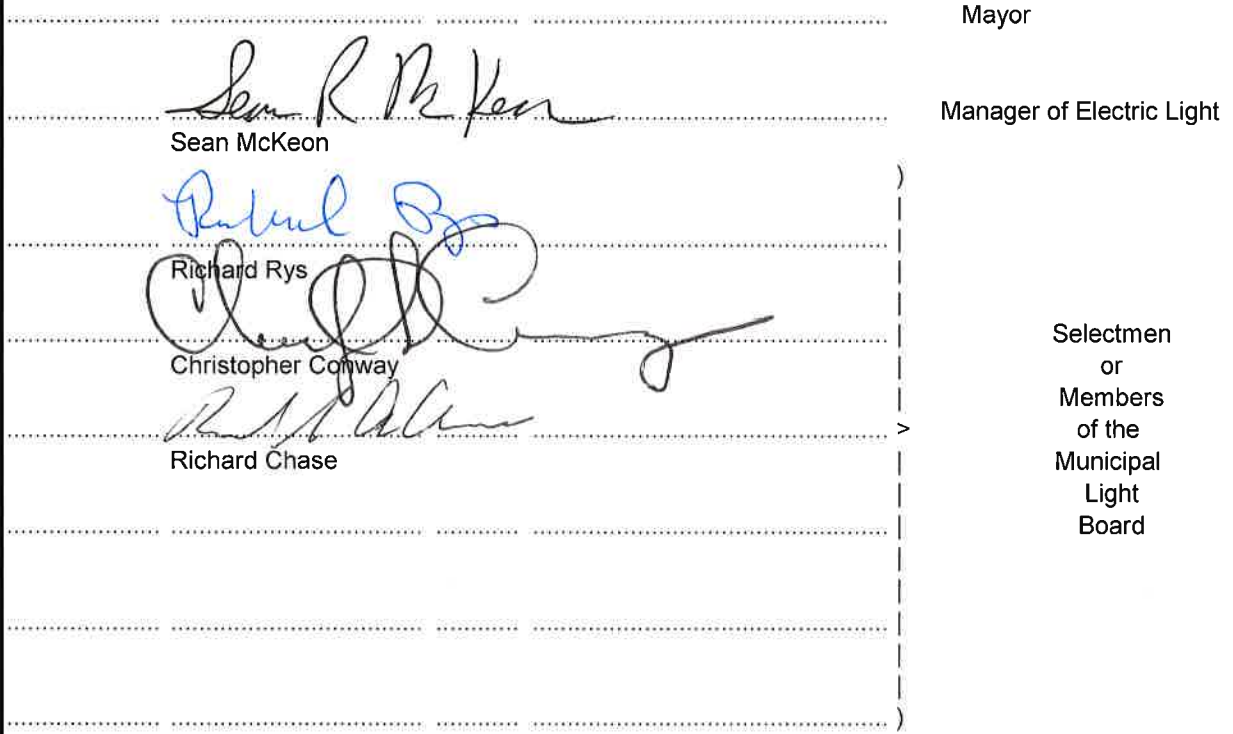 Mayor
Sean R McKeon
Manager of Electric Light
Sean McKeon
)
Richard Rys
Richard Rys
Christopher Conway
>
Richard Chase
Selectmen
or
Members
of the
Municipal
Light
Board
)